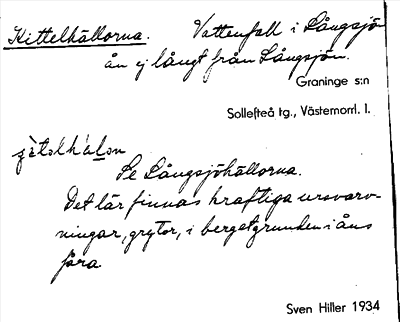 Kittelhällorna. Vattenfall i Långsjö
ån ej långt från Långsjön.
Graninge s:n
Sollefteå tg., Västernorrl. l.
Se Långsjöhällorna.
Det lär finnas kraftiga ursvarv-
ningar, grytor, i bergetgrunden i åns
fåra
Sven Hiller 1934